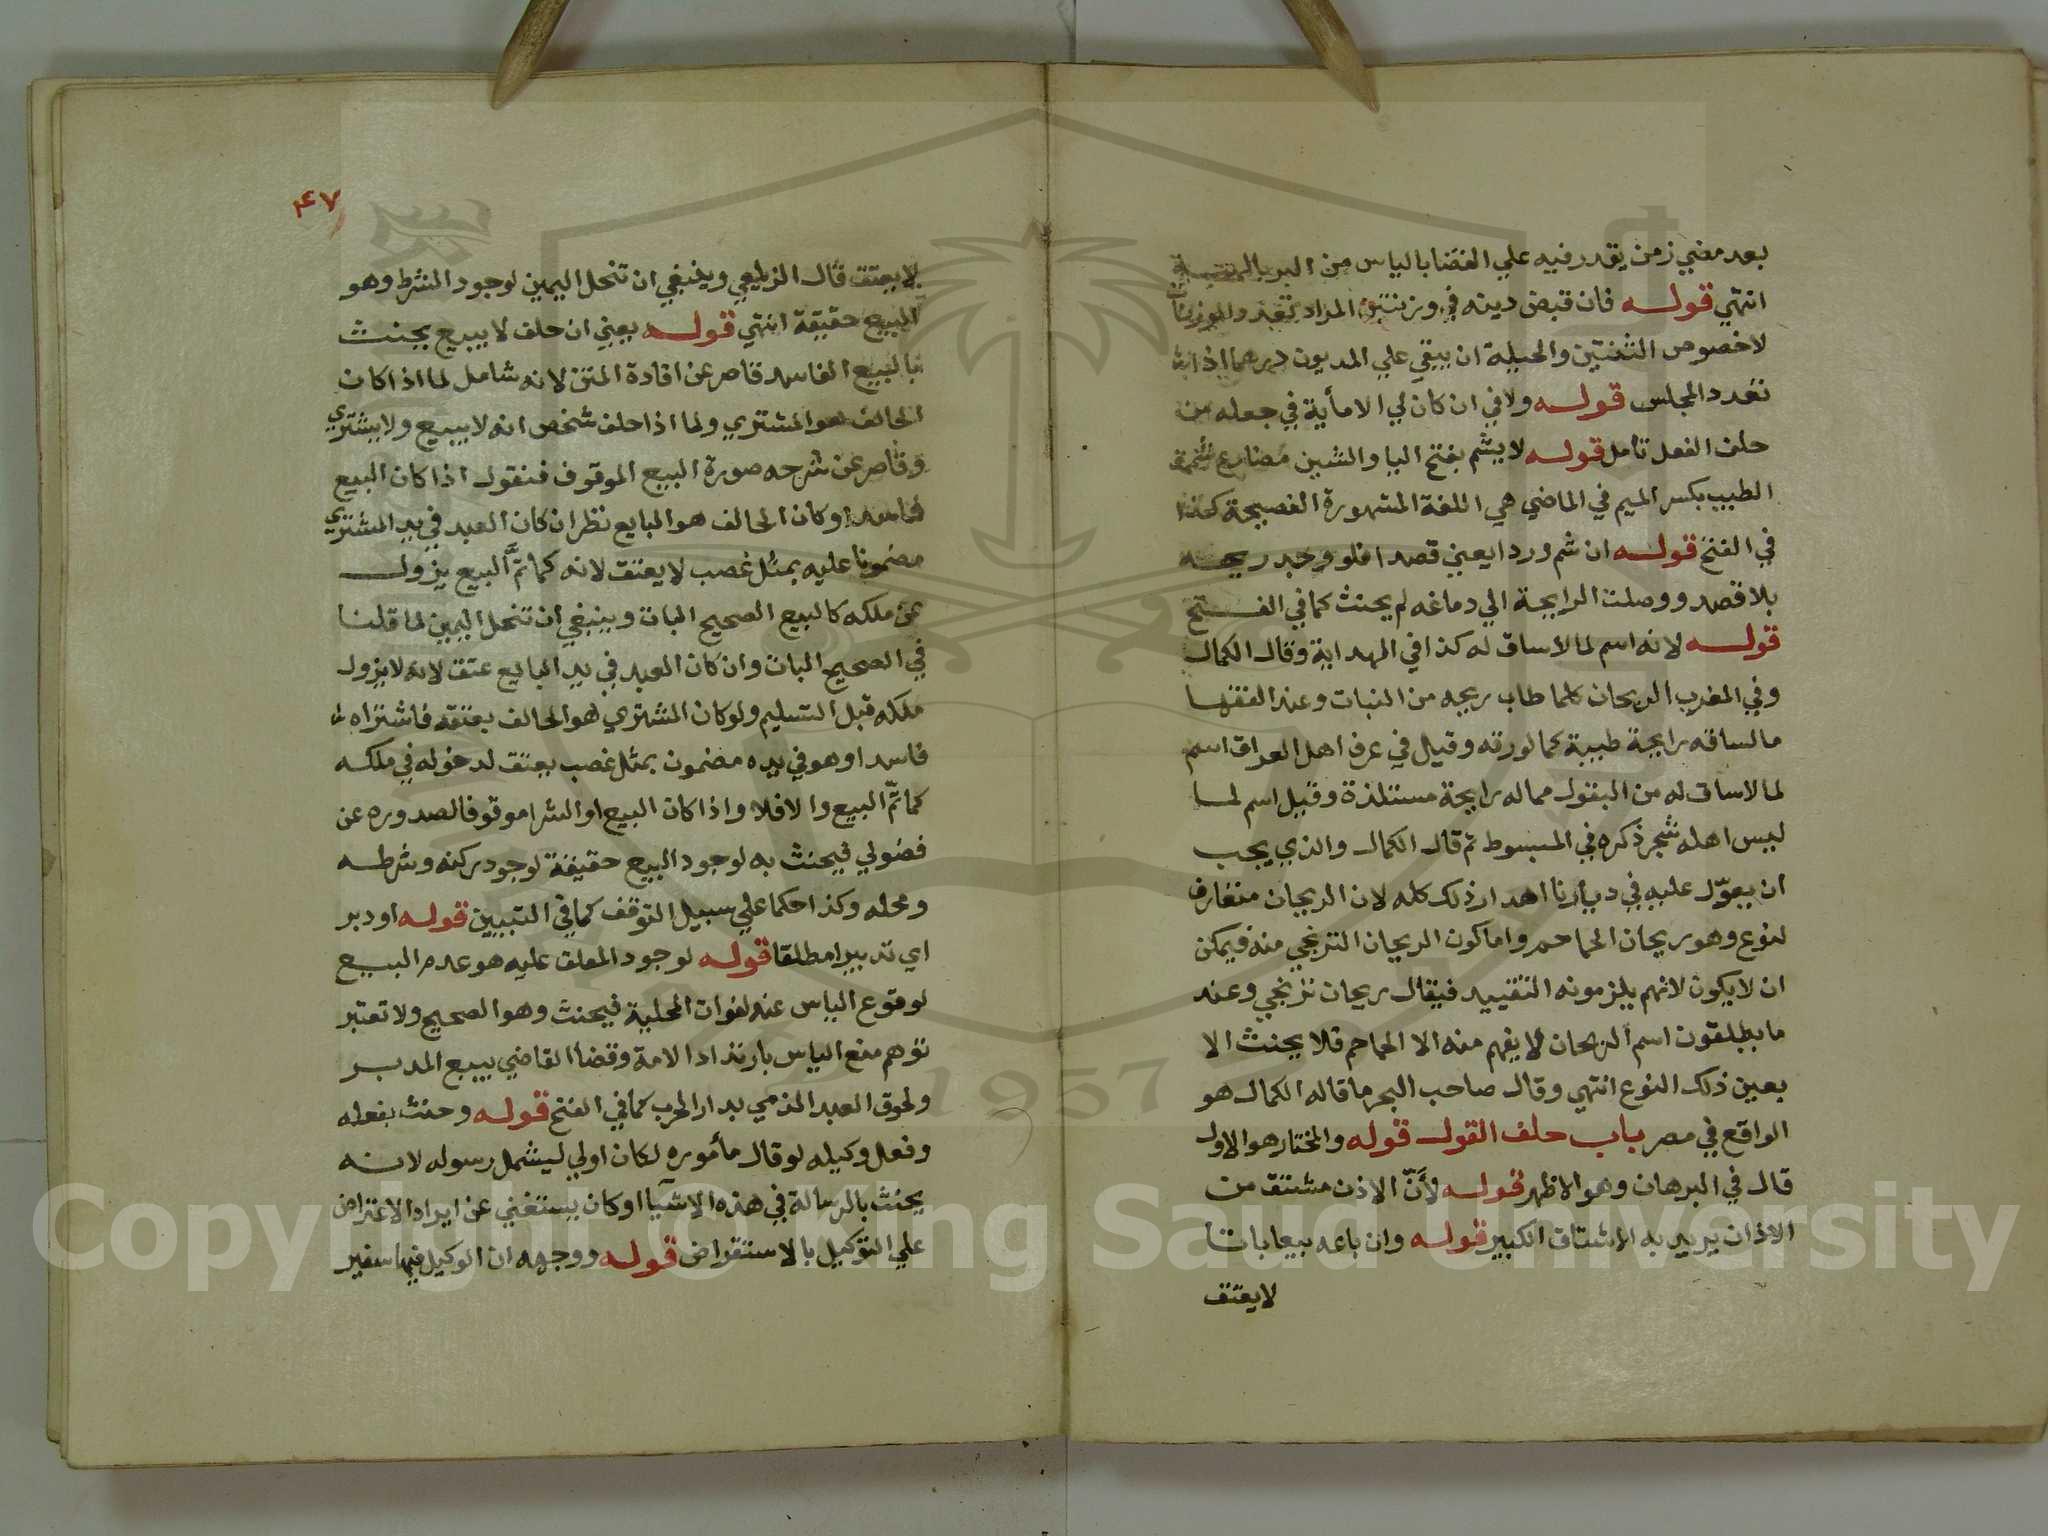 بعد مضي زمن يقدر فيه علي القضا بالياس من البر بالهبة
انتهي قوله فان قبض دينه في وزنتين المراد تعدد الوزنات
لا خصوص الثنتين والحيلة ان يبقي علي المديون درهما اذا
تعدد المجلس قوله ولا في ان كان لي الا مأية في جعله من
حلف الفعل تأمل قوله لا يشم بفتح اليا والشين مضارع شممت
الطيب بكسر الميم في الماضي هي اللغة المشهورة الفصيحة كذا
في الفتح قوله ان شم وردا يعني قصدا فلو وجد ريحه
بلا قصد ووصلت الرايحة الي دماغه لم يحنث كما في الفتح
قوله لانه اسم لما لا ساق له كذا في الهداية وقال الكمال
وفي المغرب الريحان كلما طاب ريحه من النبات وعند الفقها
ما لساقه رايحة طيبة كما لورقه وقيل في عرف اهل العراق اسم
لما لا ساق له من البقول مما له رايحة مستلذة وقيل اسم لما
ليس اهله شجر ذكره في المبسوط ثم قال الكمال والذي يجب
ان يعوّل عليه في ديارنا اهدار ذلك كله لان الريحان متعارف
لنوع وهو ريحان الحماحم واما كون الريحان الترنجي منه فيمكن
ان لا يكون لانهم يلزمونه التقييد فيقال ريحان ترنجي وعند
ما يطلقون اسم الريحان لا يفهم منه الا الحماحم فلا يحنث الا
بعين ذلك النوع انتهي وقال صاحب البحر ما قاله الكمال هو
الواقع في مصر باب حلف القول قوله والمختار هو الاول
قال في البرهان وهو الاظهر قوله لأنّ الاذن مشتق من
الاذان يريد به الاشتاق الكبير قوله وان باعه بيعا باتا
لا يعتق
٤٧
لا يعتق قال الزيلعي وينبغي ان تنحل اليمين لوجود الشرط وهو
البيع حقيقة انتهي قوله يعني ان حلف لا يبيع يحنث
بالبيع الفاسد قاصر عن افادة المتن لانه شامل لما اذا كان
الحالف هو المشتري ولما اذا حلف شخص انه لا يبيع ولا يشتري
وقاصر عن شرحه صورة البيع الموقوف فنقول اذا كان البيع
فاسدا وكان الحالف هو البايع نظر ان كان العبد في يد المشتري
مضمونا عليه بمثل غصب لا يعتق لانه كما تمَّ البيع يزول
عن ملكه كالبيع الصحيح البات وينبغي ان تنحل اليمين لما قلنا
في الصحيح البات وان كان العبد في يد البايع عتق لانه لا يزول
ملكه قبل التسليم ولو كان المشتري هو الحالف بعتقه فاشتراه
فاسدا وهو في يده مضمون بمثل غصب يعتق لدخوله في ملكه
كما تمّ البيع والا فلا واذا كان البيع او الشرا موقوفا لصدوره عن
فضولي فيحنث به لوجود البيع حقيقة لوجود ركنه وشرطه
ومحله وكذا حكما علي سبيل التوقف كما في التبيين قوله او دبر
اي تدبيرا مطلقا قوله لوجود المعلق عليه هو عدم البيع
لوقوع الياس عنه لفوات المحلية فيحنث وهو الصحيح ولا تعتبر
توهم منع الياس بارتداد الامة وقضا القاضي ببيع المدبر
ولحوق العبد الذمي بدار الحرب كما في الفتح قوله وحنث بفعله
وفعل وكيله لو قال مأموره لكان اولي ليشمل رسوله لانه
يحنث بالرسالة في هذه الاشيا او كان يستغني عن ايراد الاعتراض
علي التوكيل بالاستقراض قوله ووجهه ان الوكيل فيها سفير
Copyright © King Saud University
1957